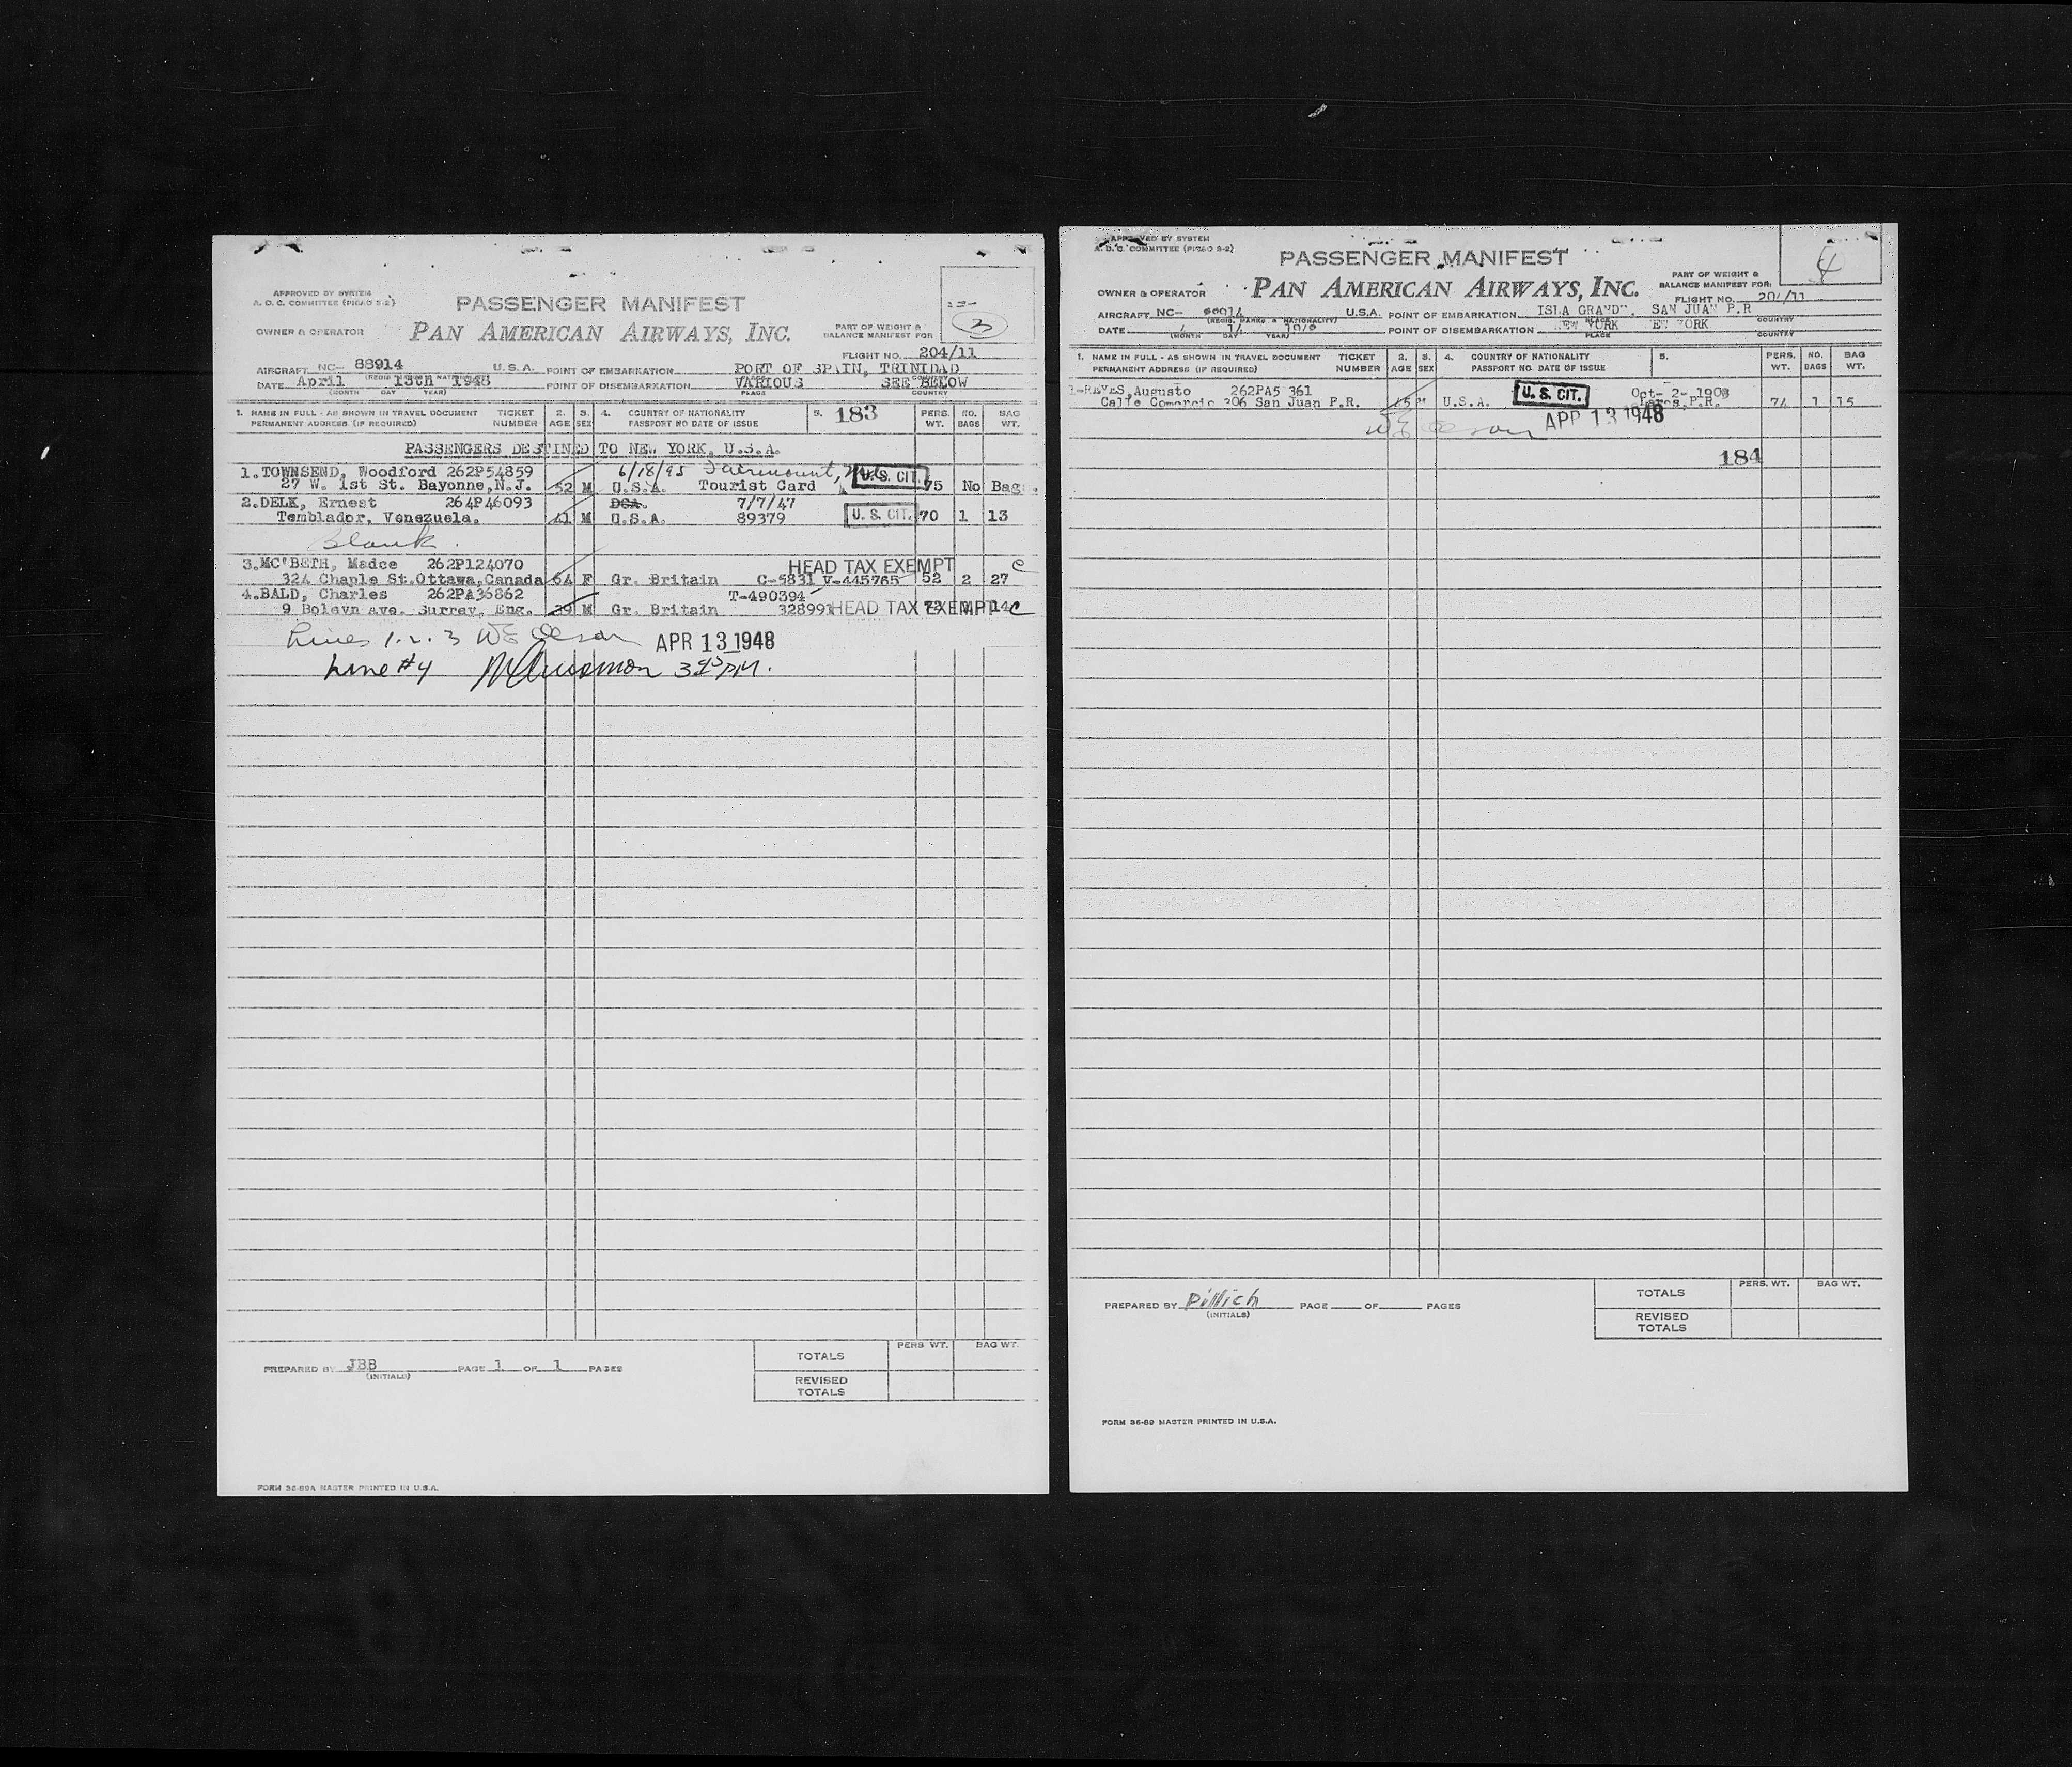 APPROVED BY SYSTEM
A. D. C. COMMITTEE (PICAO S-2)
PASSENGER MANIFEST
3
OWNER & OPERATOR PAN AMERICAN AIRWAYS, INC. PART OF WEIGHT &
BALANCE MANIFEST FOR
FLIGHT NO. 204/11
AIRCRAFT NC- 88914 U.S.A. POINT OF EMBARKATION PORT OF SPAIN, TRINIDAD
DATE April 13th 1948 POINT OF DISEMBARKATION VARIOUS SEE BELOW
(MONTH DAY YEAR) PLACE COUNTRY
1. NAME IN FULL - AS SHOWN IN TRAVEL DOCUMENT TICKET 2. 3. 4. COUNTRY OF NATIONALITY 5. 183 PERS. NO. BAG
PERMANENT ADDRESS (IF REQUIRED) NUMBER AGE SEX PASSPORT NO DATE OF ISSUE WT. BAGS WT.
PASSENGERS DESTINED TO NEW YORK, U.S.A.
1. TOWNSEND, Woodford 262P54859 6/18/95 Fairmount, U.S. CIT.
27 W. 1st St. Bayonne, N.J. 52 M U.S.A. Tourist Card 75 No Bag.
2. DELK, Ernest 264P46093 7/7/47
Temblador, Venezuela. 41 M U.S.A. 89379 U.S. CIT. 70 1 13
Blank.
3. MC'BETH, Madce 262P124070 HEAD TAX EXEMPT C
324 Chaple St. Ottawa, Canada 64 F Gr. Britain C-5831 V-445765 52 2 27
4. BALD, Charles 262PA36862 T-490394
9 Boleyn Ave. Surrey, Eng. 39 M Gr. Britain 328991 HEAD TAX EXEMPT 14 C
Lines 1. 2. 3 APR 13 1948
Line #4
PREPARED BY JBB PAGE 1 OF 1 PAGES
(INITIALS)
PERS WT. BAG WT.
TOTALS
REVISED
TOTALS
FORM 36-89A MASTER PRINTED IN U.S.A.
APPROVED BY SYSTEM
A. D. C. COMMITTEE (PICAO S-2)
PASSENGER MANIFEST
4
OWNER & OPERATOR PAN AMERICAN AIRWAYS, INC. PART OF WEIGHT &
BALANCE MANIFEST FOR:
FLIGHT NO. 204/11
AIRCRAFT NC- U.S.A. POINT OF EMBARKATION ISLA GRANDE, SAN JUAN P.R
(REGIS. MARKS & NATIONALITY) PLACE COUNTRY
DATE POINT OF DISEMBARKATION NEW YORK
(MONTH DAY YEAR) PLACE COUNTRY
1. NAME IN FULL - AS SHOWN IN TRAVEL DOCUMENT TICKET 2. 3. 4. COUNTRY OF NATIONALITY 5. PERS. NO. BAG
PERMANENT ADDRESS (IF REQUIRED) NUMBER AGE SEX PASSPORT NO. DATE OF ISSUE WT. BAGS WT.
1-REYES, Augusto 262PA5 361 U.S. CIT. Oct- 2- 1903
Calle Comercio 306 San Juan P.R. 45 M U.S.A. Lares, P.R. 74 1 15
APR 13 1948
184
PREPARED BY PAGE OF PAGES
(INITIALS)
PERS. WT. BAG WT.
TOTALS
REVISED
TOTALS
FORM 36-89 MASTER PRINTED IN U.S.A.